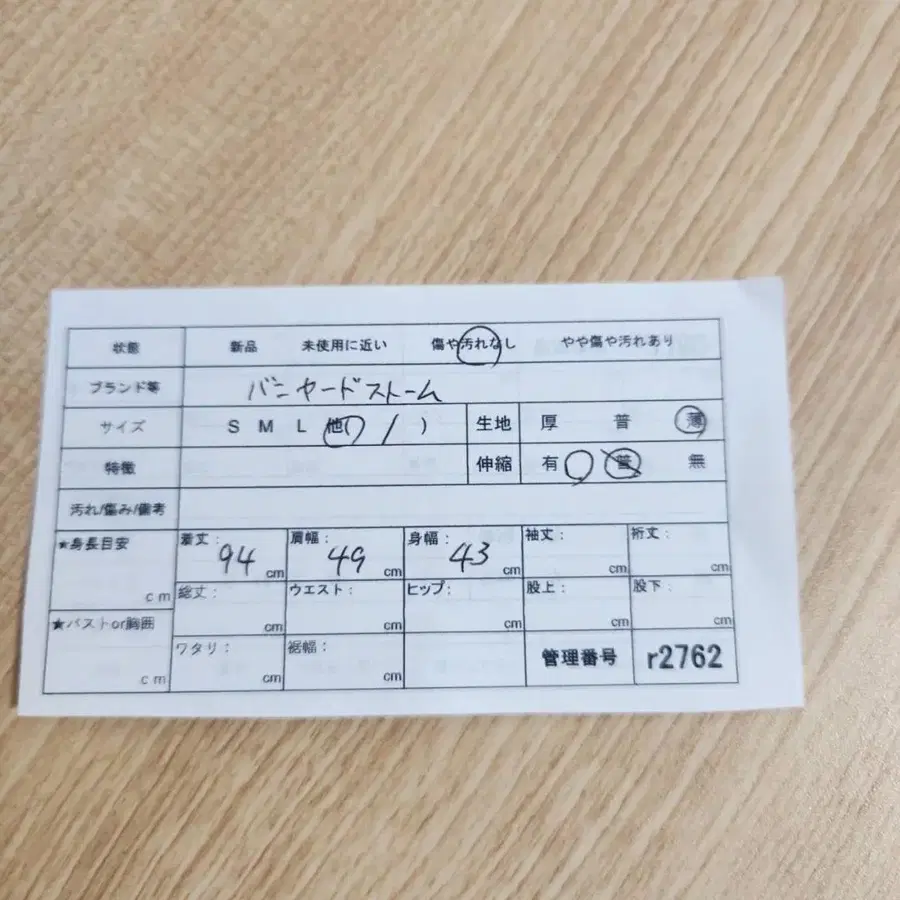 状態 新品 未使用に近い 傷や汚れなし やや傷や汚れあり
ブランド等 バンヤードストーム
サイズ S M L 他( / ) 生地 厚 普 薄
特徴 伸縮 有 普 無
汚れ/傷み/備考
★身長目安 cm 着丈: 94 cm 肩幅: 49 cm 身幅: 43 cm 袖丈: cm 裄丈: cm
総丈: cm ウエスト: cm ヒップ: cm 股上: cm 股下: cm
★バストor胸囲 cm ワタリ: cm 裾幅: cm 管理番号 r2762